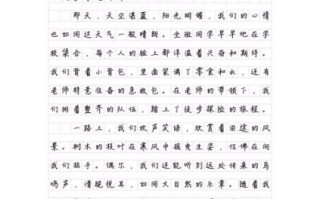 那天，天空湛蓝，阳光明媚，我们的心情
也如同这天气一般晴朗。全班同学早早地在学
校集合，每个人的脸上都洋溢着兴奋和期待。
我们背着小背包，里面装满了零食和水，还有
老师特意准备的急救包。在老师的带领下，我
们排着整齐的队伍，踏上了徒步探险的旅程。
一路上，我们欢声笑语，欣赏着沿途的风
景。树木的枝叶在寒风中摇曳生姿，仿佛在向
我们招手。偶尔，我们还能听到远处传来的鸟
鸣声，清脆悦耳，如同大自然的乐章。随着我